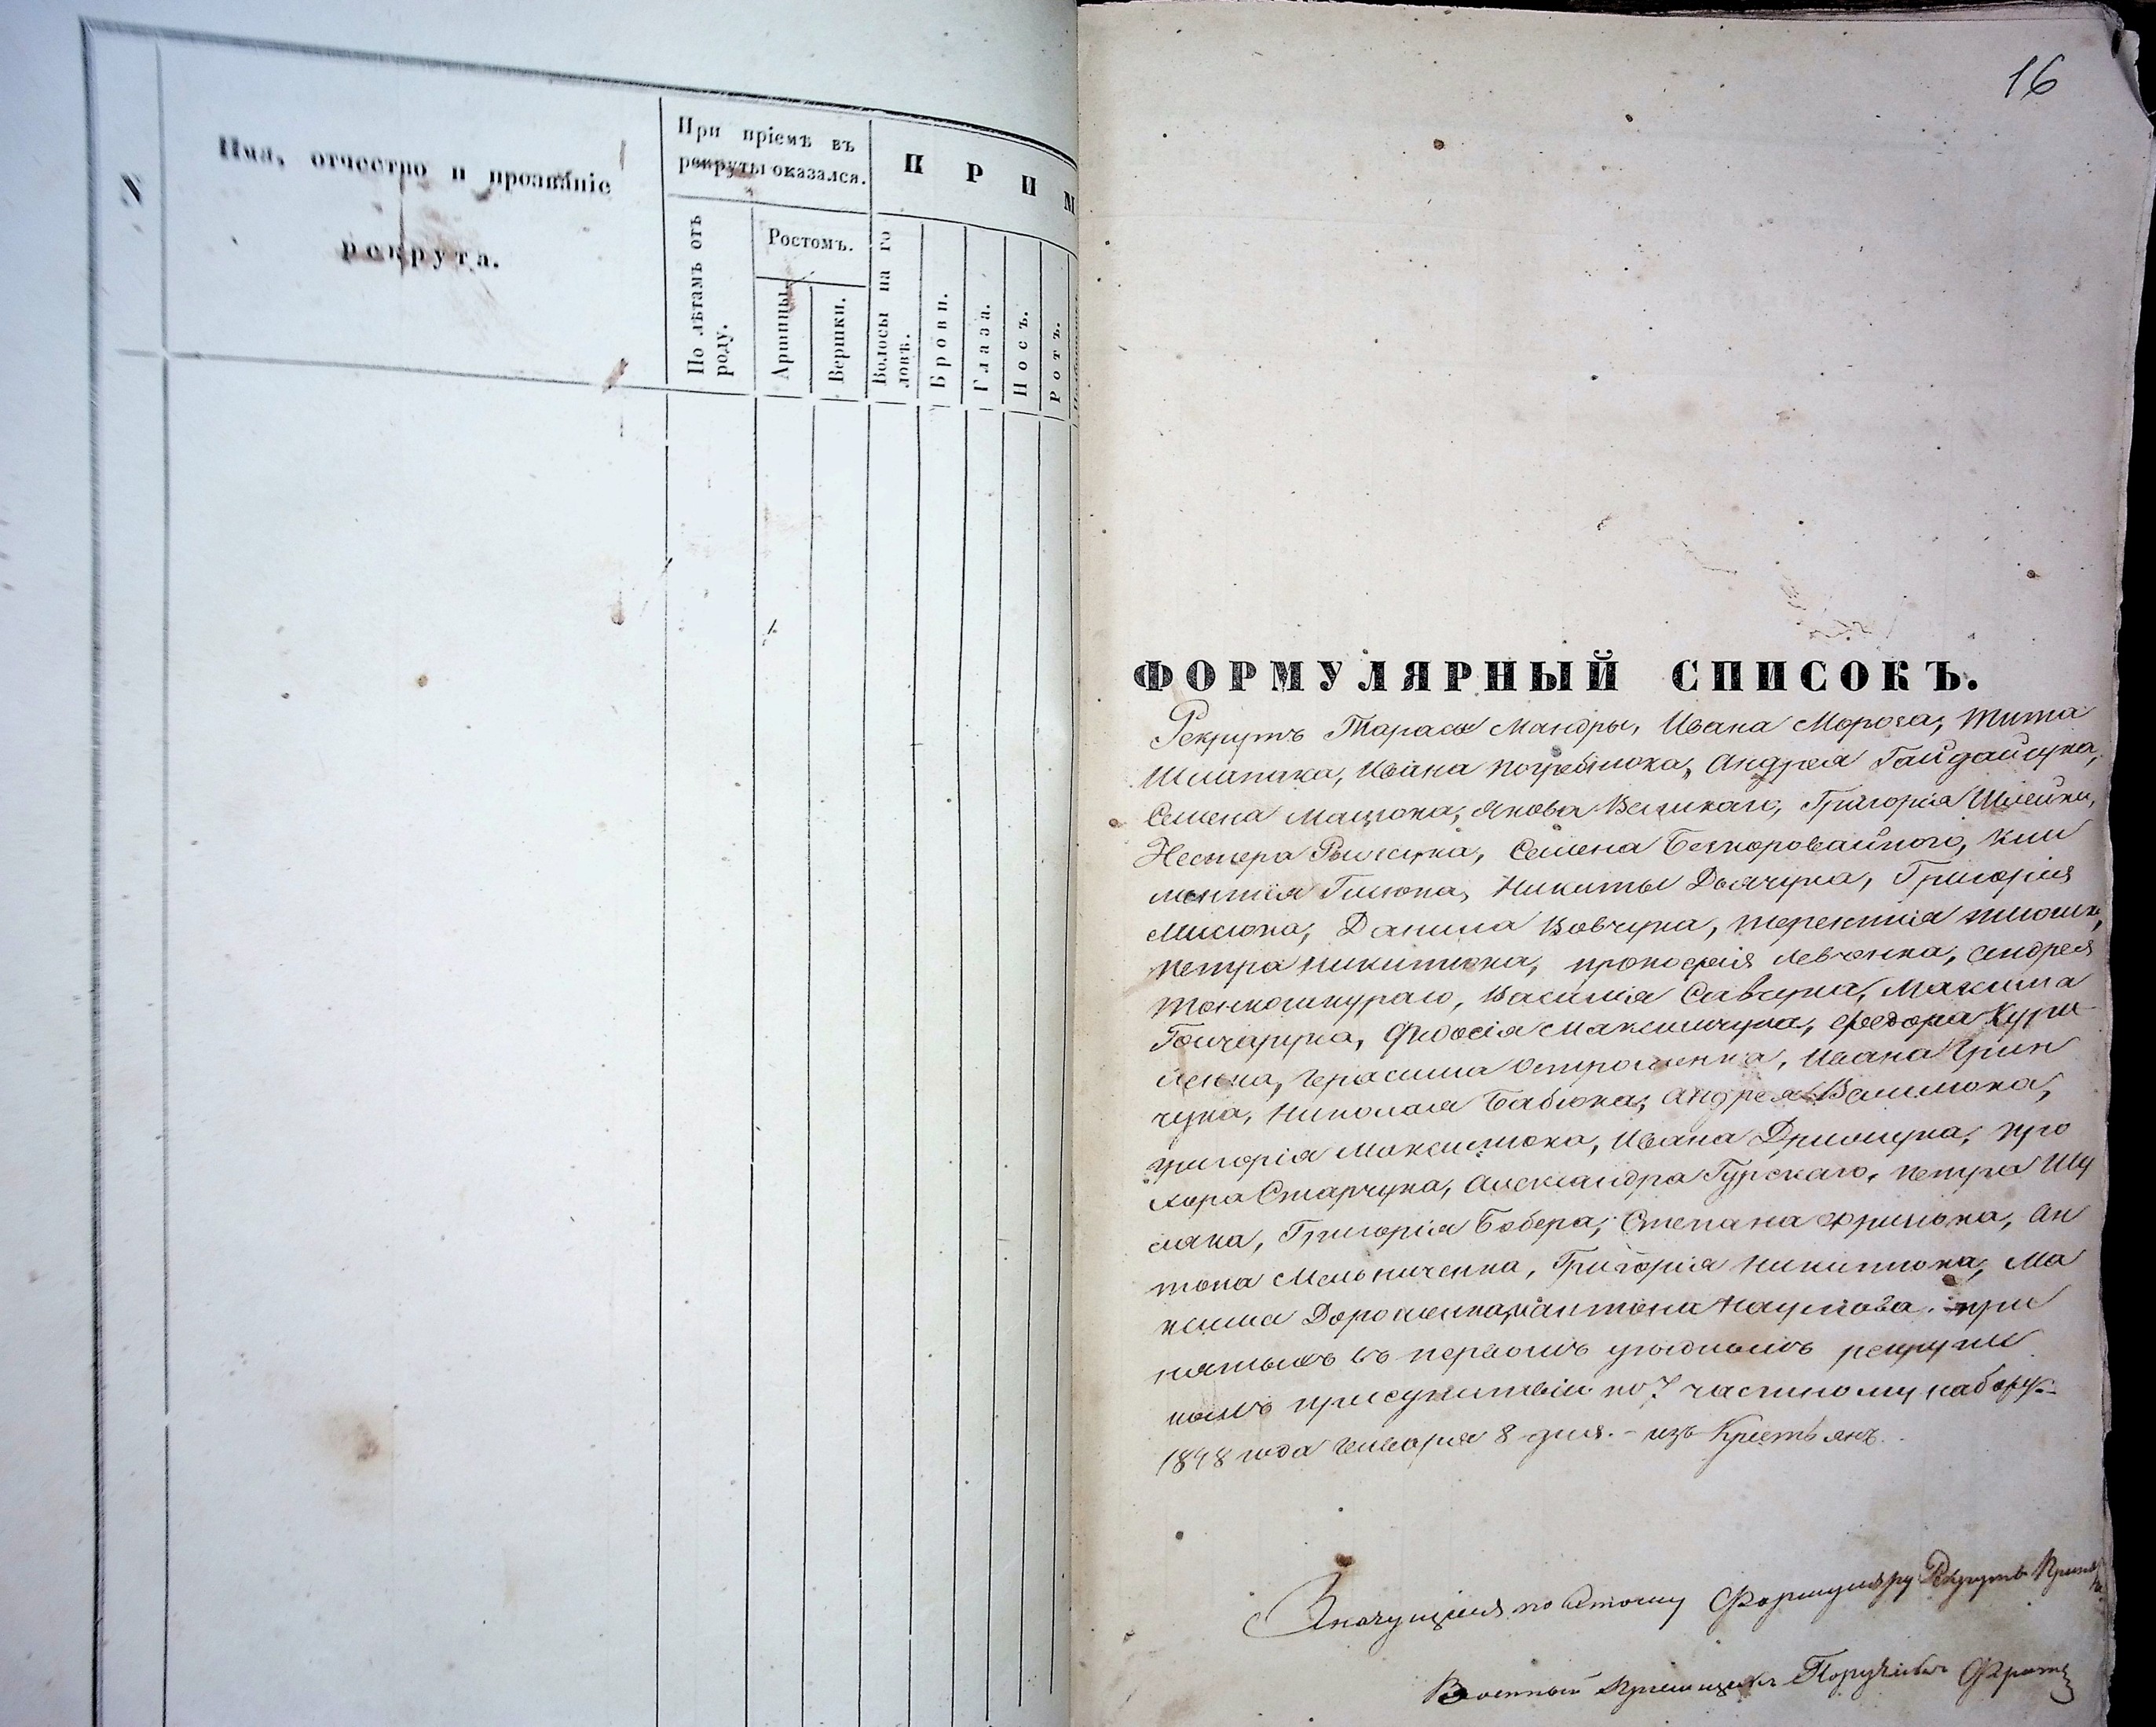 N
Имя, отчество и прозваніе
рекрута.
При пріемѣ въ
рекруты оказался.
П Р И М
По лѣтамъ отъ
роду.
Ростомъ.
Аршины.
Вершки.
Волосы на го
ловѣ.
Брови.
Глаза.
Носъ.
Ротъ.
16
ФОРМУЛЯРНЫЙ СПИСОКЪ.
Рекрутъ Тараса Мандры, Ивана Мороза, Тита
Ивана Погребнюка, Андрея Гайдайчука,
Семена Мацюка, Якова Великаго, Григорія Шлейки,
Нестера Семена Безкоровайного, Кли
ментія Никиты Дьячука, Григорія
Мисюка, Данила Вовчука, Терентія
Петра Никитюка, Прокофія Левченка, Андрея
Тонкошкураго, Василія Савчука, Максима
Гончарука, Федосія Максимчука, Федора Кури
ленка, Герасима Остроменка, Ивана Грин
чука, Николая Бабюка, Андрея
Григорія Максимюка, Ивана Про
хора Старчука, Александра Гурскаго, Петра Шу
ляка, Григорія Бобера, Степана Фрилюка, Ан
тона Мельниченка, Григорія Никитюка, Ма
ксима Антона Наумова. при
нятымъ въ первомъ уѣздномъ рекрутс
комъ присутствіи по 7 частному набору
1848 года Генваря 8 дня. - изъ Крестьянъ.
Значущіеся по этому Формуляру Рекрутъ
Военный Пріемщикъ Поручикъ